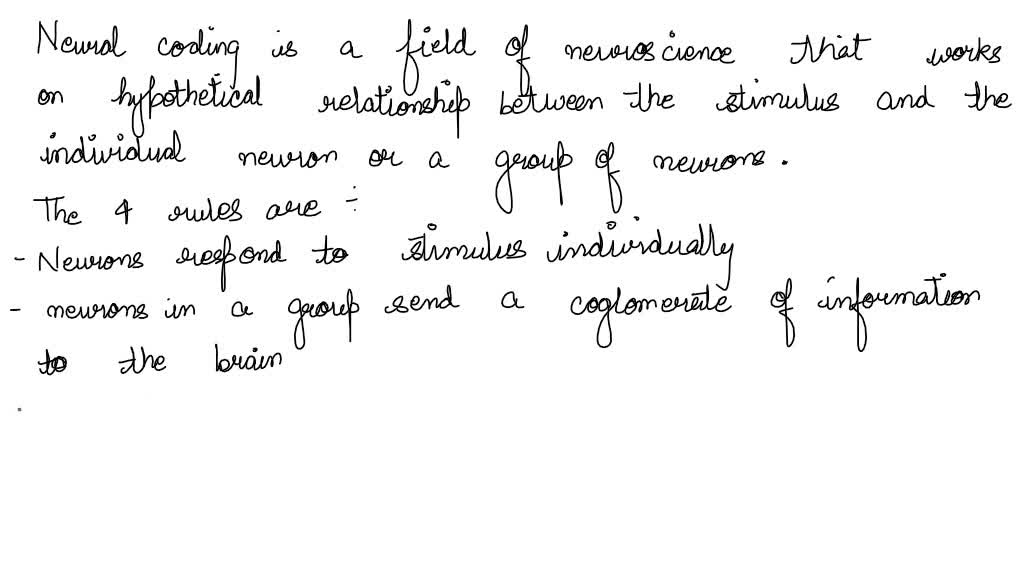 Neural coding is a field of neuroscience that works
on hypothetical relationship between the stimulus and the
individual neuron or a group of neurons.
The 4 rules are ÷
- Neurons respond to stimulus individually
- neurons in a group send a coglomerate of information
to the brain